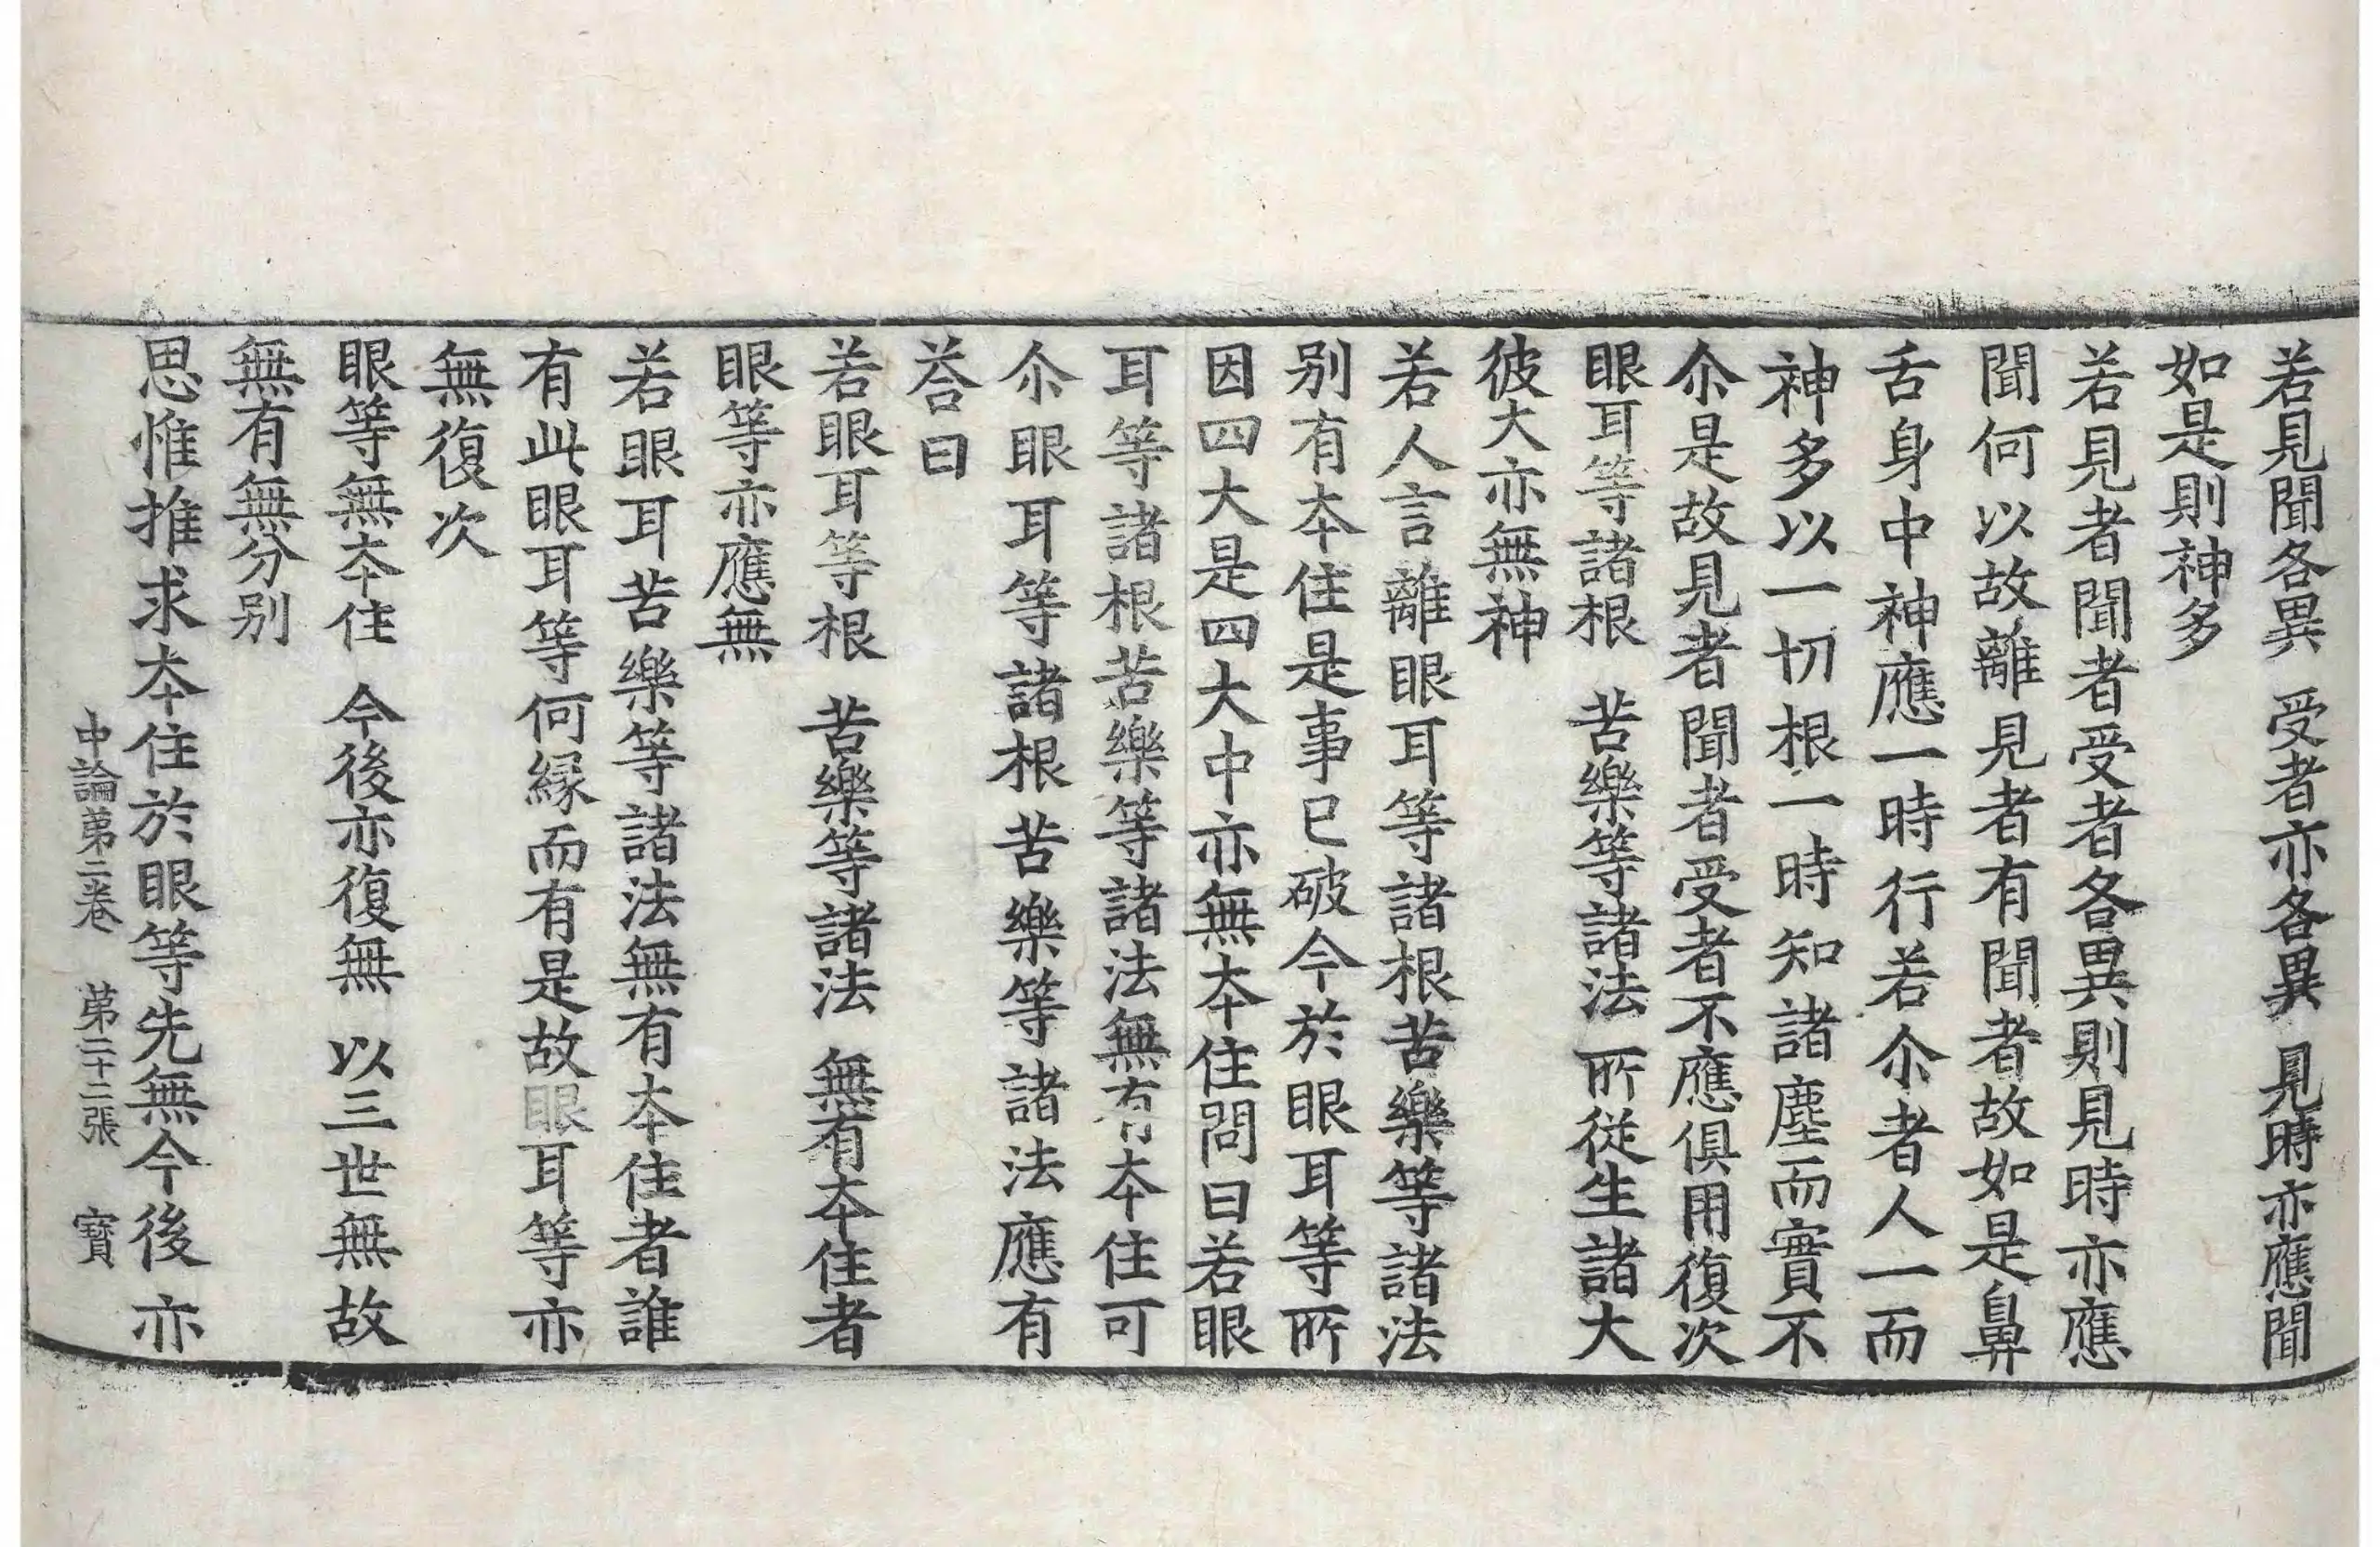 若見聞各異　受者亦各異　見時亦應聞
如是則神多
若見者聞者受者各異則見時亦應
聞何以故離見者有聞者故如是鼻
舌身中神應一時行若尒者人一而
神多以一切根一時知諸塵而實不
尒是故見者聞者受者不應俱用復次
眼耳等諸根　苦樂等諸法　所從生諸大
彼大亦無神
若人言離眼耳等諸根苦樂等諸法
别有夲住是事已破今於眼耳等所
因四大是四大中亦無夲住問曰若眼
耳等諸根苦樂等諸法無有夲住可
尒眼耳等諸根苦樂等諸法應有
荅曰
若眼耳等根　苦樂等諸法　無有夲住者
眼等亦應無
若眼耳苦樂等諸法無有夲住者誰
有此眼耳等何縁而有是故眼耳等亦
無復次
眼等無夲住　今後亦復無　以三世無故
無有無分别
思惟推求夲住於眼等先無今後亦
中論第二卷　第二十二張　寳